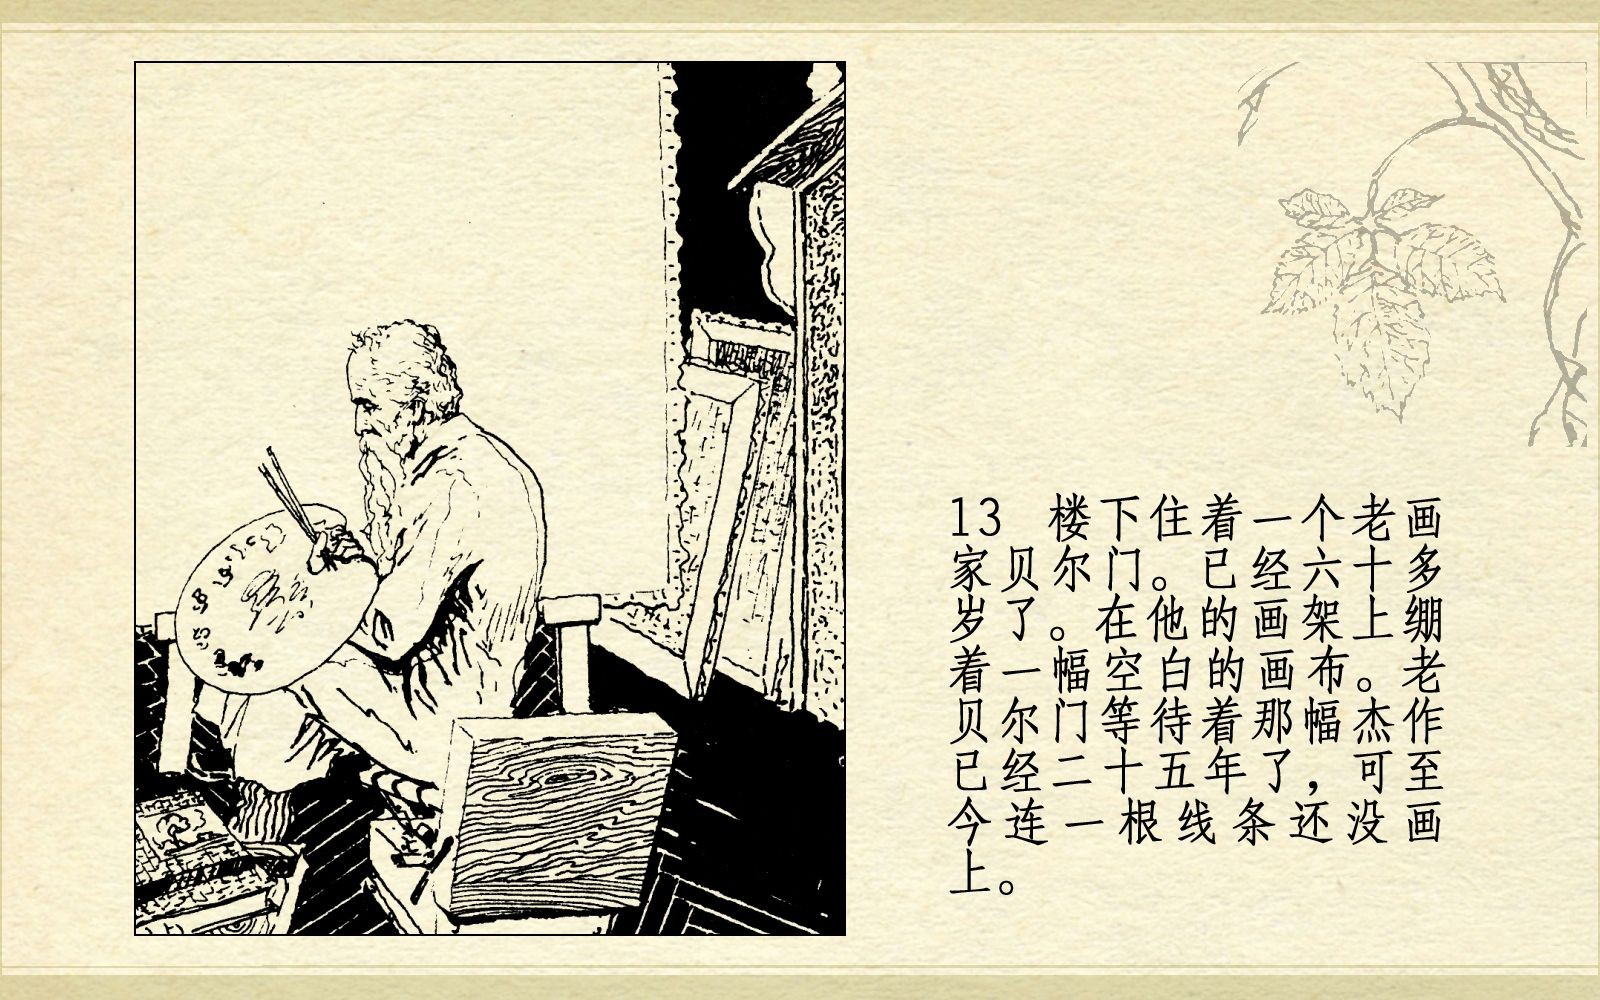 13 楼下住着一个老画
家贝尔门。已经六十多
岁了。在他的画架上绷
着一幅空白的画布。老
贝尔门等待着那幅杰作
已经二十五年了，可至
今连一根线条还没画
上。